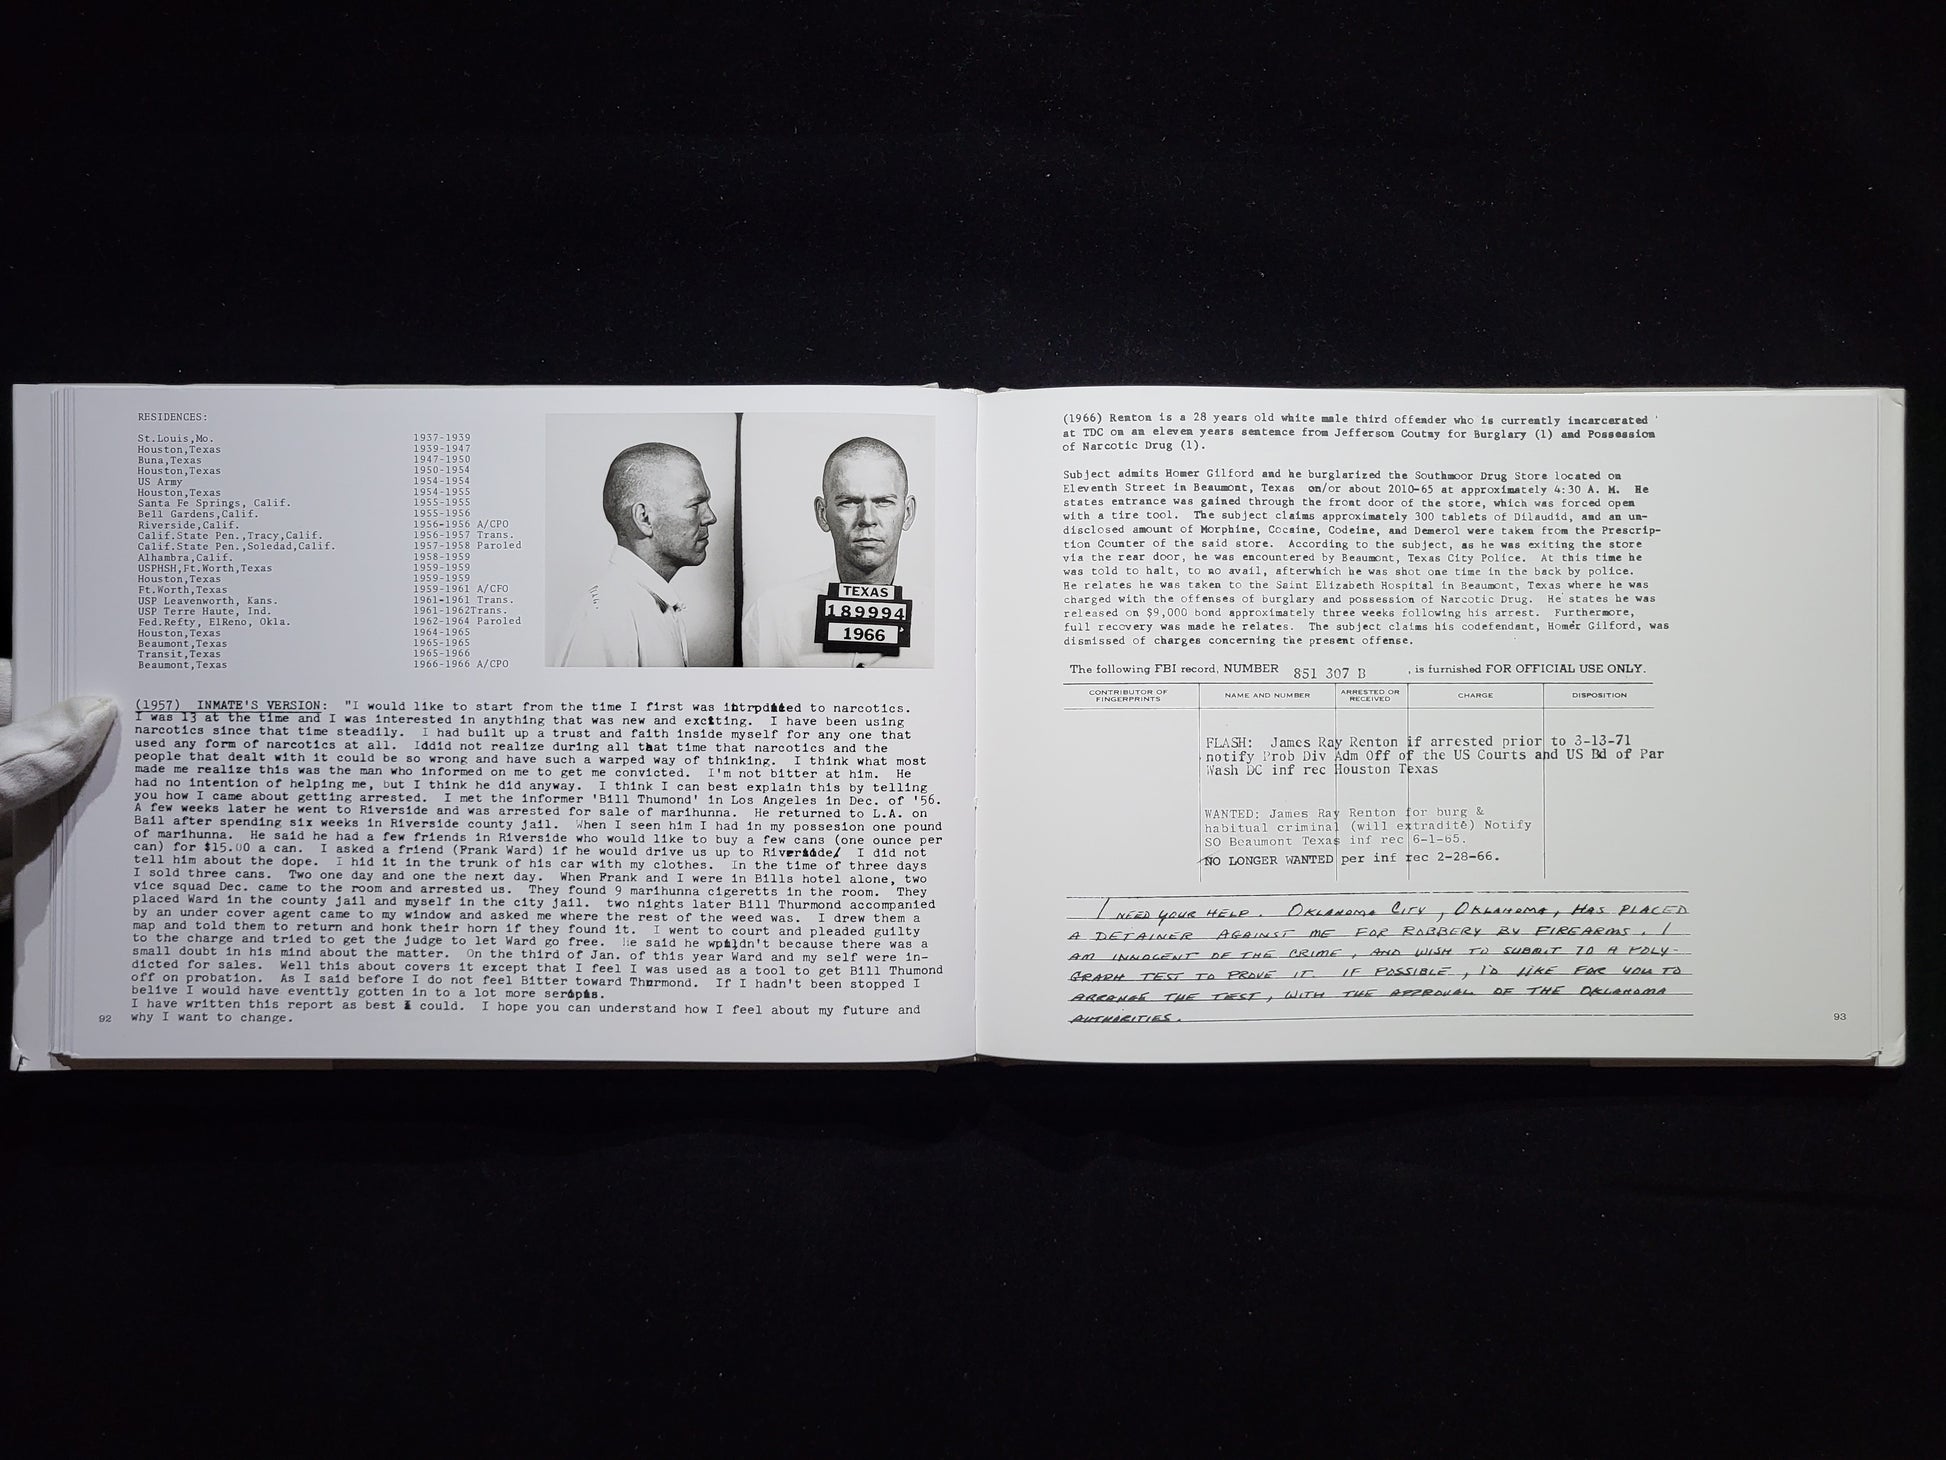 RESIDENCES:
St.Louis,Mo. 1937-1939
Houston,Texas 1939-1947
Buna,Texas 1947-1950
Houston,Texas 1950-1954
US Army 1954-1954
Houston,Texas 1954-1955
Santa Fe Springs, Calif. 1955-1955
Bell Gardens,Calif. 1955-1956
Riverside,Calif. 1956-1956 A/CPO
Calif.State Pen.,Tracy,Calif. 1956-1957 Trans.
Calif.State Pen.,Soledad,Calif. 1957-1958 Paroled
Alhambra,Calif. 1958-1959
USPHSH,Ft.Worth,Texas 1959-1959
Houston,Texas 1959-1959
Ft.Worth,Texas 1959-1961 A/CFO
USP Leavenworth, Kans. 1961-1961 Trans.
USP Terre Haute, Ind. 1961-1962Trans.
Fed.Refty, ElReno, Okla. 1962-1964 Paroled
Houston,Texas 1964-1965
Beaumont,Texas 1965-1965
Transit,Texas 1965-1966
Beaumont,Texas 1966-1966 A/CPO
TEXAS
189994
1966
(1957) INMATE'S VERSION: "I would like to start from the time I first was to narcotics.
I was 13 at the time and I was interested in anything that was new and exciting. I have been using
narcotics since that time steadily. I had built up a trust and faith inside myself for any one that
used any form of narcotics at all. Iddid not realize during all that time that narcotics and the
people that dealt with it could be so wrong and have such a warped way of thinking. I think what most
made me realize this was the man who informed on me to get me convicted. I'm not bitter at him. He
had no intention of helping me, but I think he did anyway. I think I can best explain this by telling
you how I came about getting arrested. I met the informer 'Bill Thumond' in Los Angeles in Dec. of '56.
A few weeks later he went to Riverside and was arrested for sale of marihunna. He returned to L.A. on
Bail after spending six weeks in Riverside county jail. When I seen him I had in my possesion one pound
of marihunna. He said he had a few friends in Riverside who would like to buy a few cans (one ounce per
can) for $15.00 a can. I asked a friend (Frank Ward) if he would drive us up to Riverside/ I did not
tell him about the dope. I hid it in the trunk of his car with my clothes. In the time of three days
I sold three cans. Two one day and one the next day. When Frank and I were in Bills hotel alone, two
vice squad Dec. came to the room and arrested us. They found 9 marihunna cigeretts in the room. They
placed Ward in the county jail and myself in the city jail. two nights later Bill Thurmond accompanied
by an under cover agent came to my window and asked me where the rest of the weed was. I drew them a
map and told them to return and honk their horn if they found it. I went to court and pleaded guilty
to the charge and tried to get the judge to let Ward go free. He said he because there was a
small doubt in his mind about the matter. On the third of Jan. of this year Ward and my self were in-
dicted for sales. Well this about covers it except that I feel I was used as a tool to get Bill Thumond
off on probation. As I said before I do not feel Bitter toward Thurmond. If I hadn't been stopped I
belive I would have eventtly gotten in to a lot more
I have written this report as best I could. I hope you can understand how I feel about my future and
why I want to change.
92
(1966) Renton is a 28 years old white male third offender who is currently incarcerated
at TDC on an eleven years sentence from Jefferson Coutny for Burglary (1) and Possession
of Narcotic Drug (1).
Subject admits Homer Gilford and he burglarized the Southmoor Drug Store located on
Eleventh Street in Beaumont, Texas on/or about 2010-65 at approximately 4:30 A. M. He
states entrance was gained through the front door of the store, which was forced open
with a tire tool. The subject claims approximately 300 tablets of Dilaudid, and an un-
disclosed amount of Morphine, Cocaine, Codeine, and Demerol were taken from the Prescrip-
tion Counter of the said store. According to the subject, as he was exiting the store
via the rear door, he was encountered by Beaumont, Texas City Police. At this time he
was told to halt, to no avail, afterwhich he was shot one time in the back by police.
He relates he was taken to the Saint Elizabeth Hospital in Beaumont, Texas where he was
charged with the offenses of burglary and possession of Narcotic Drug. He states he was
released on $9,000 bond approximately three weeks following his arrest. Furthermore,
full recovery was made he relates. The subject claims his codefendant, Homer Gilford, was
dismissed of charges concerning the present offense.
The following FBI record, NUMBER 851 307 B , is furnished FOR OFFICIAL USE ONLY.
CONTRIBUTOR OF FINGERPRINTS NAME AND NUMBER ARRESTED OR RECEIVED CHARGE DISPOSITION
FLASH: James Ray Renton if arrested prior to 3-13-71
notify Prob Div Adm Off of the US Courts and US Bd of Par
Wash DC inf rec Houston Texas
WANTED: James Ray Renton for burg &
habitual criminal (will extradite) Notify
SO Beaumont Texas inf rec 6-1-65.
NO LONGER WANTED per inf rec 2-28-66.
I NEED YOUR HELP. OKLAHOMA CITY, OKLAHOMA, HAS PLACED
A DETAINER AGAINST ME FOR ROBBERY BY FIREARMS. I
AM INNOCENT OF THE CRIME, AND WISH TO SUBMIT TO A POLY-
GRAPH TEST TO PROVE IT. IF POSSIBLE, I'D LIKE FOR YOU TO
ARRANGE THE TEST, WITH THE APPROVAL OF THE OKLAHOMA
AUTHORITIES.
93